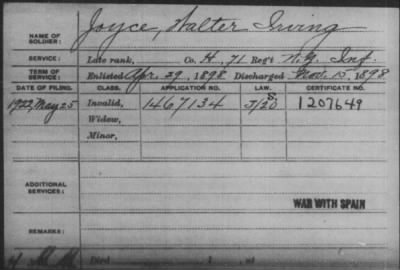 NAME OF SOLDIER: Joyce, Walter Irving
SERVICE: Late rank, Co. H, 71 Reg't N.Y. Inf.
TERM OF SERVICE: Enlisted Apr. 29, 1898 Discharged Nov. 15, 1898
DATE OF FILING. CLASS. APPLICATION NO. LAW. CERTIFICATE NO.
1922, May 25 Invalid, 1467134 1207649
Widow,
Minor,
ADDITIONAL SERVICES:
WAR WITH SPAIN
REMARKS:
Died , 1 , at